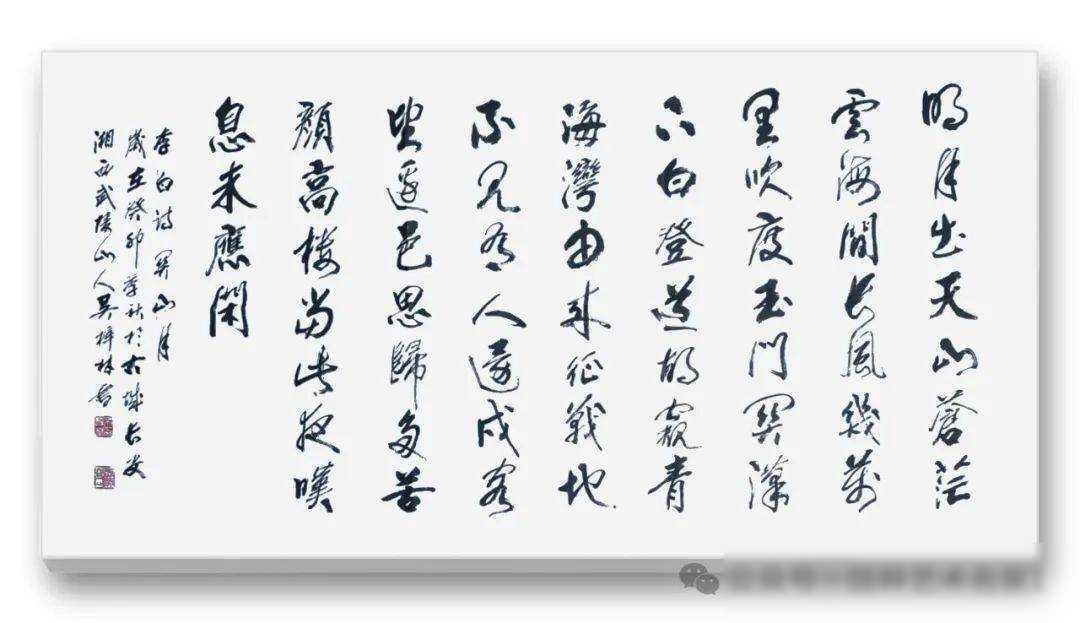 明月出天山蒼茫
雲海間長風幾萬
里吹度玉門關漢
下白登道胡窺青
海灣由來征戰地
不見有人還戍客
望邊邑思歸多苦
顏高樓當此夜嘆
息未應閑
李白詩關山月
歲在癸卯秋於古城長安
湘西武陵山人吴梓林書